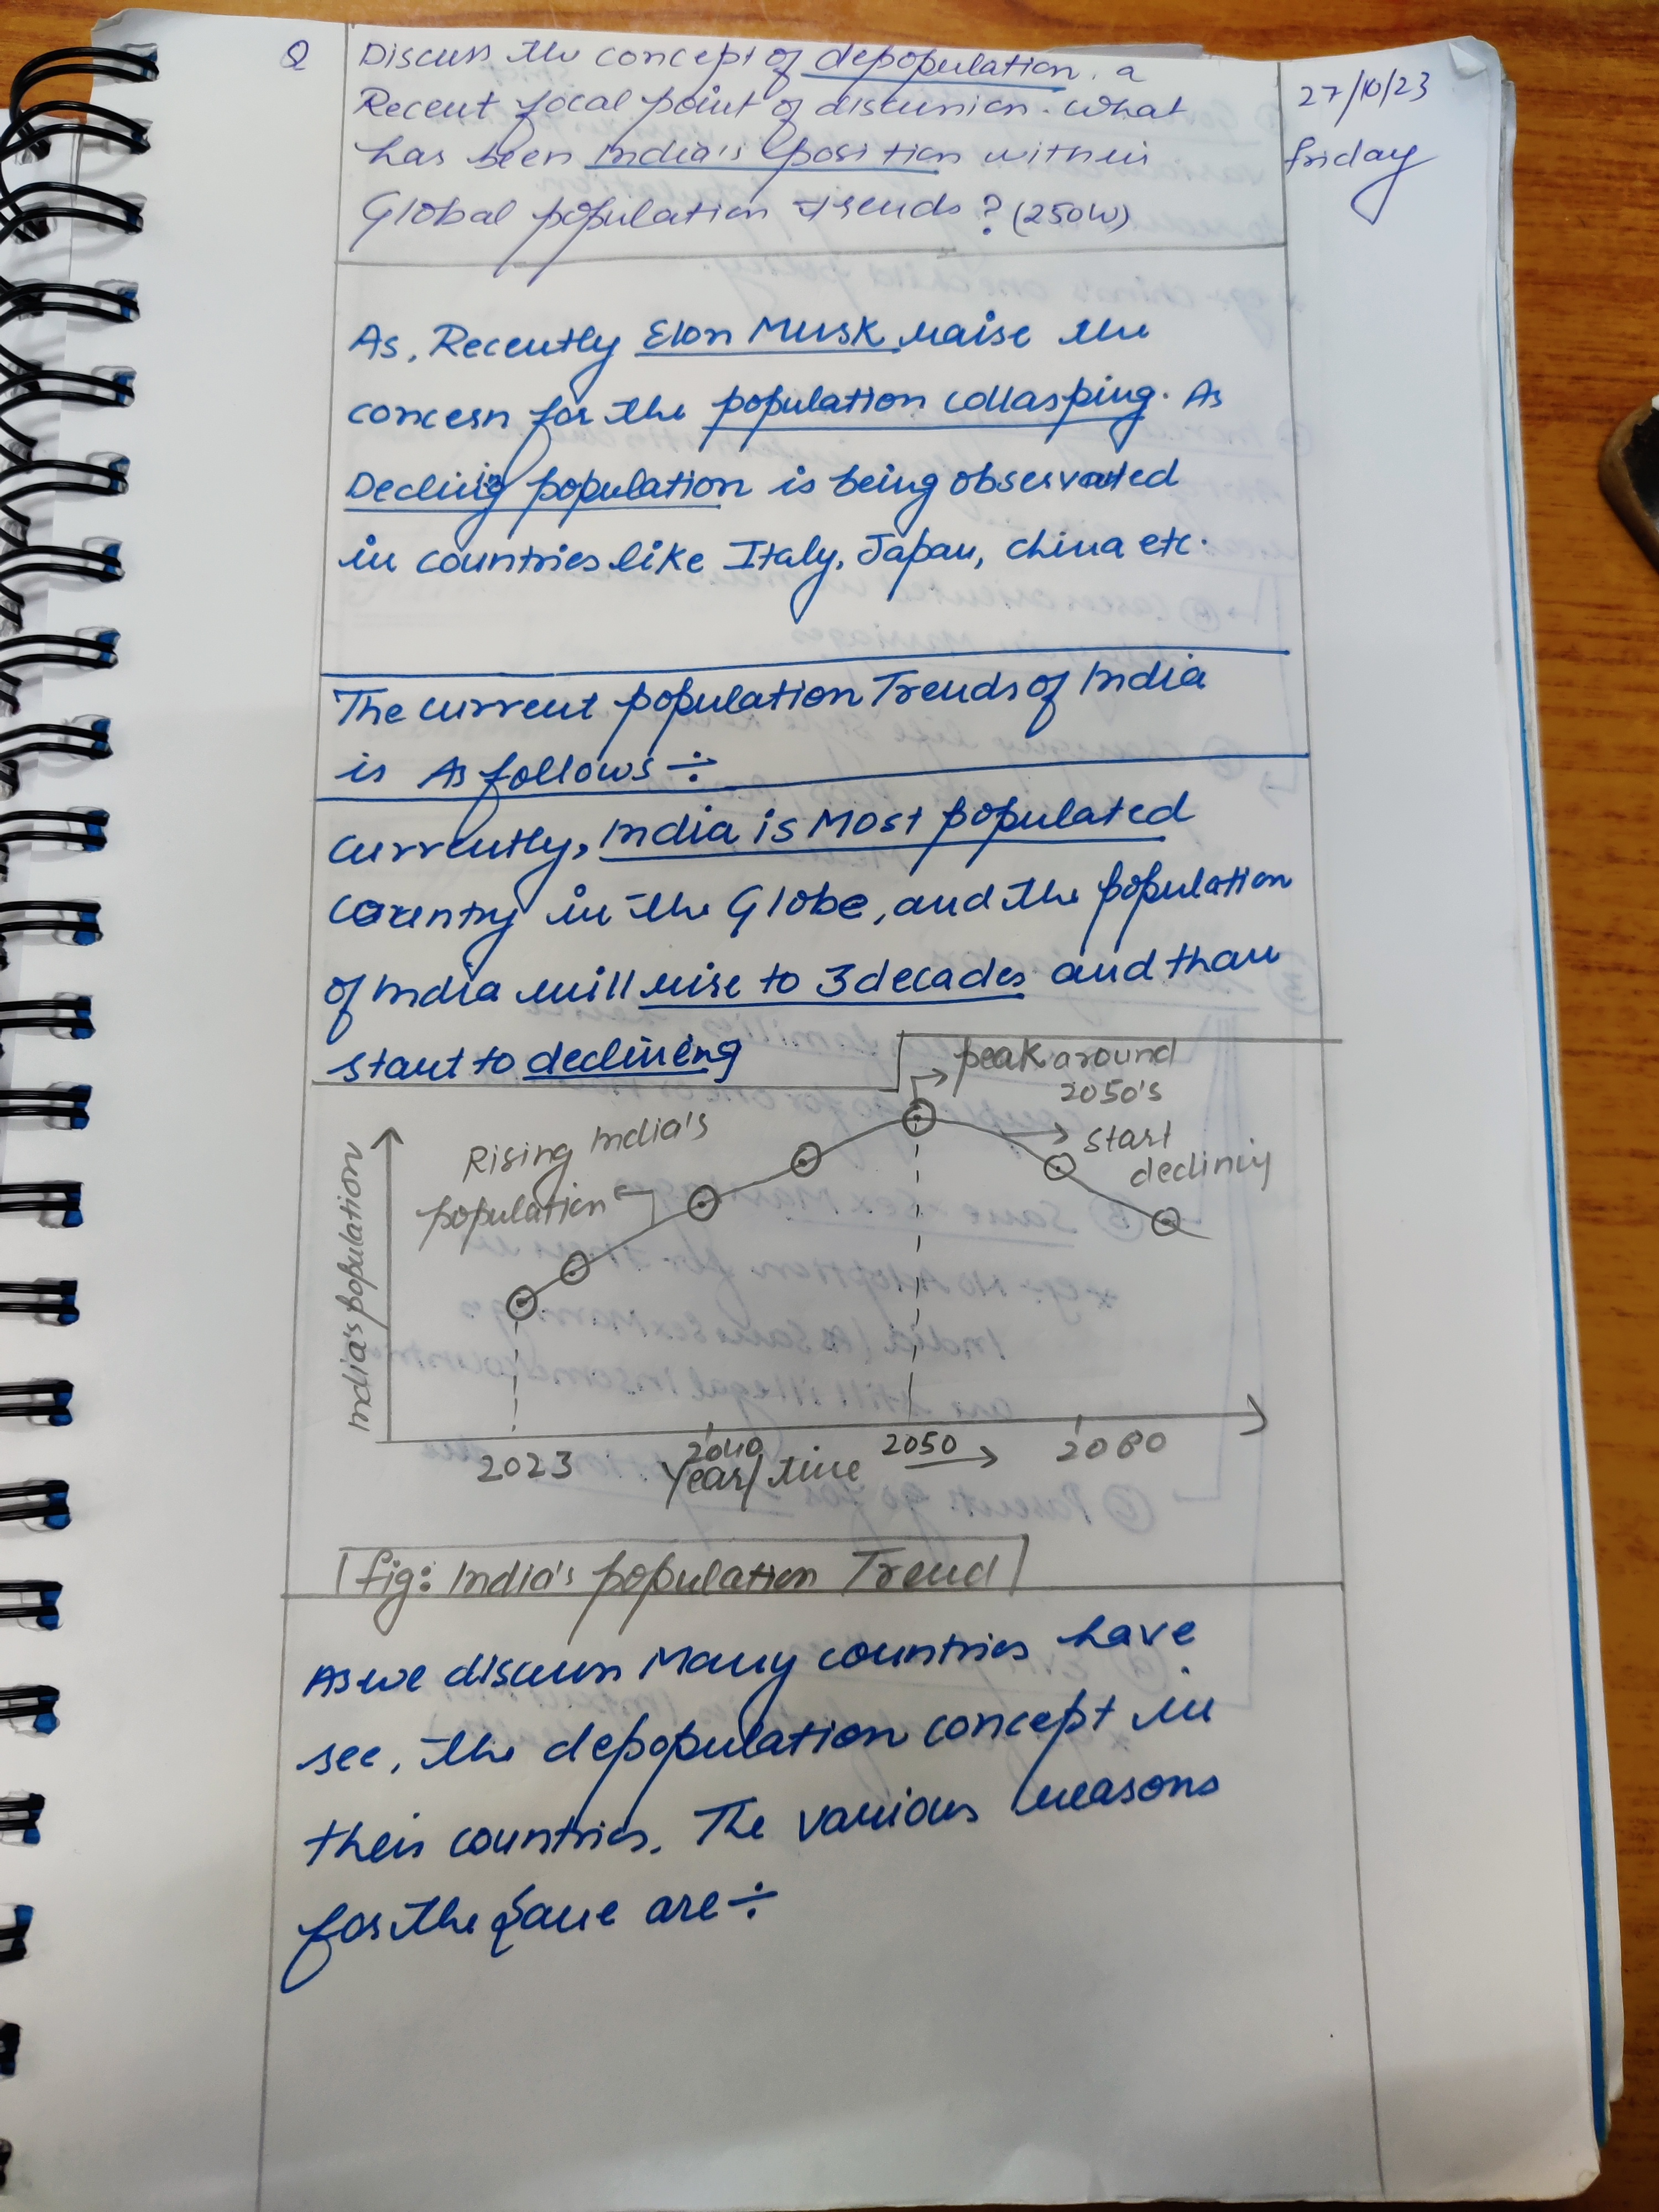 Q
Discuss the concept of depopulation, a
Recent focal point of discussion. What
has been India's position within
Global population trends? (250W)
27/10/23
friday
As, Recently Elon Musk raise the
concern for the population collasping. As
Declinig population is being observated
in countries like Italy, Japan, china etc.
The current population Trends of India
is As follows ÷
currently, India is Most populated
country in the Globe, and the population
of India will rise to 3 decades and than
start to declining
peak around
2050's
Rising India's
population
start
declining
India's population
2023
2040
2050
2060
Year/time
fig: India's population Trend
As we discuss Many countries have
see, the depopulation concept in
their countries. The various reasons
for the same are ÷